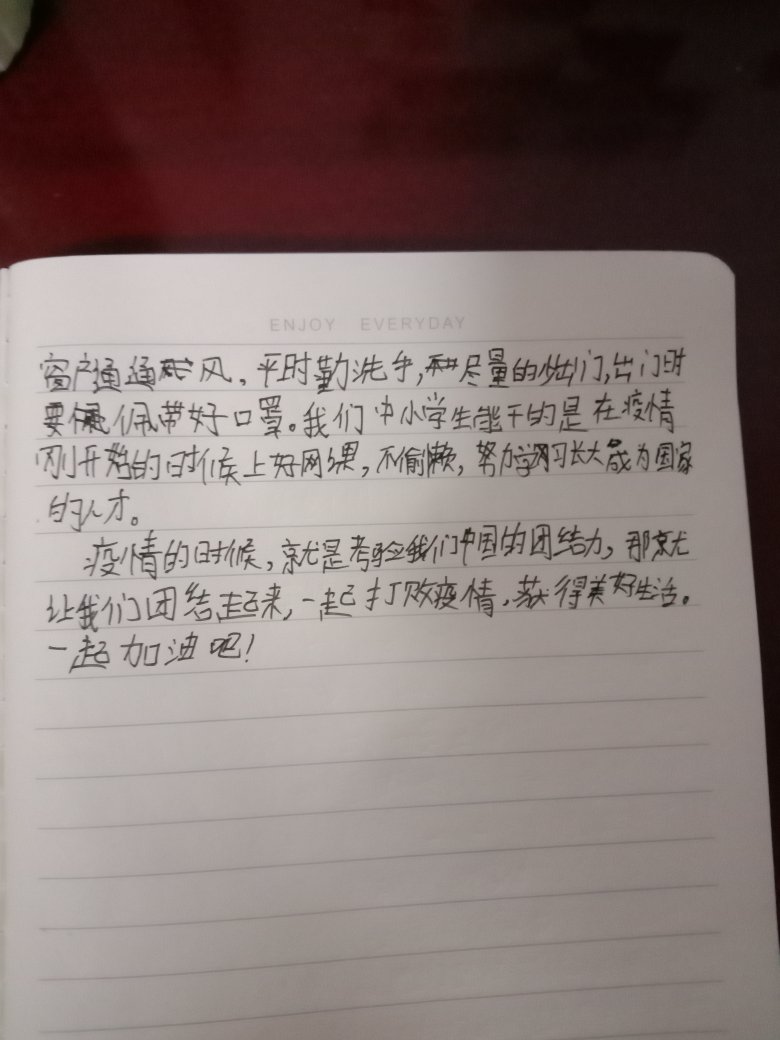 ENJOY EVERYDAY
窗户通通风，平时勤洗手，尽量的少出门，出门时
要佩带好口罩。我们中小学生能干的是在疫情
刚开始的时候上好网课，不偷懒，努力学习长大成为国家
的人才。
疫情的时候，就是考验我们中国的团结力，那就
让我们团结起来，一起打败疫情，获得美好生活。
一起加油吧！